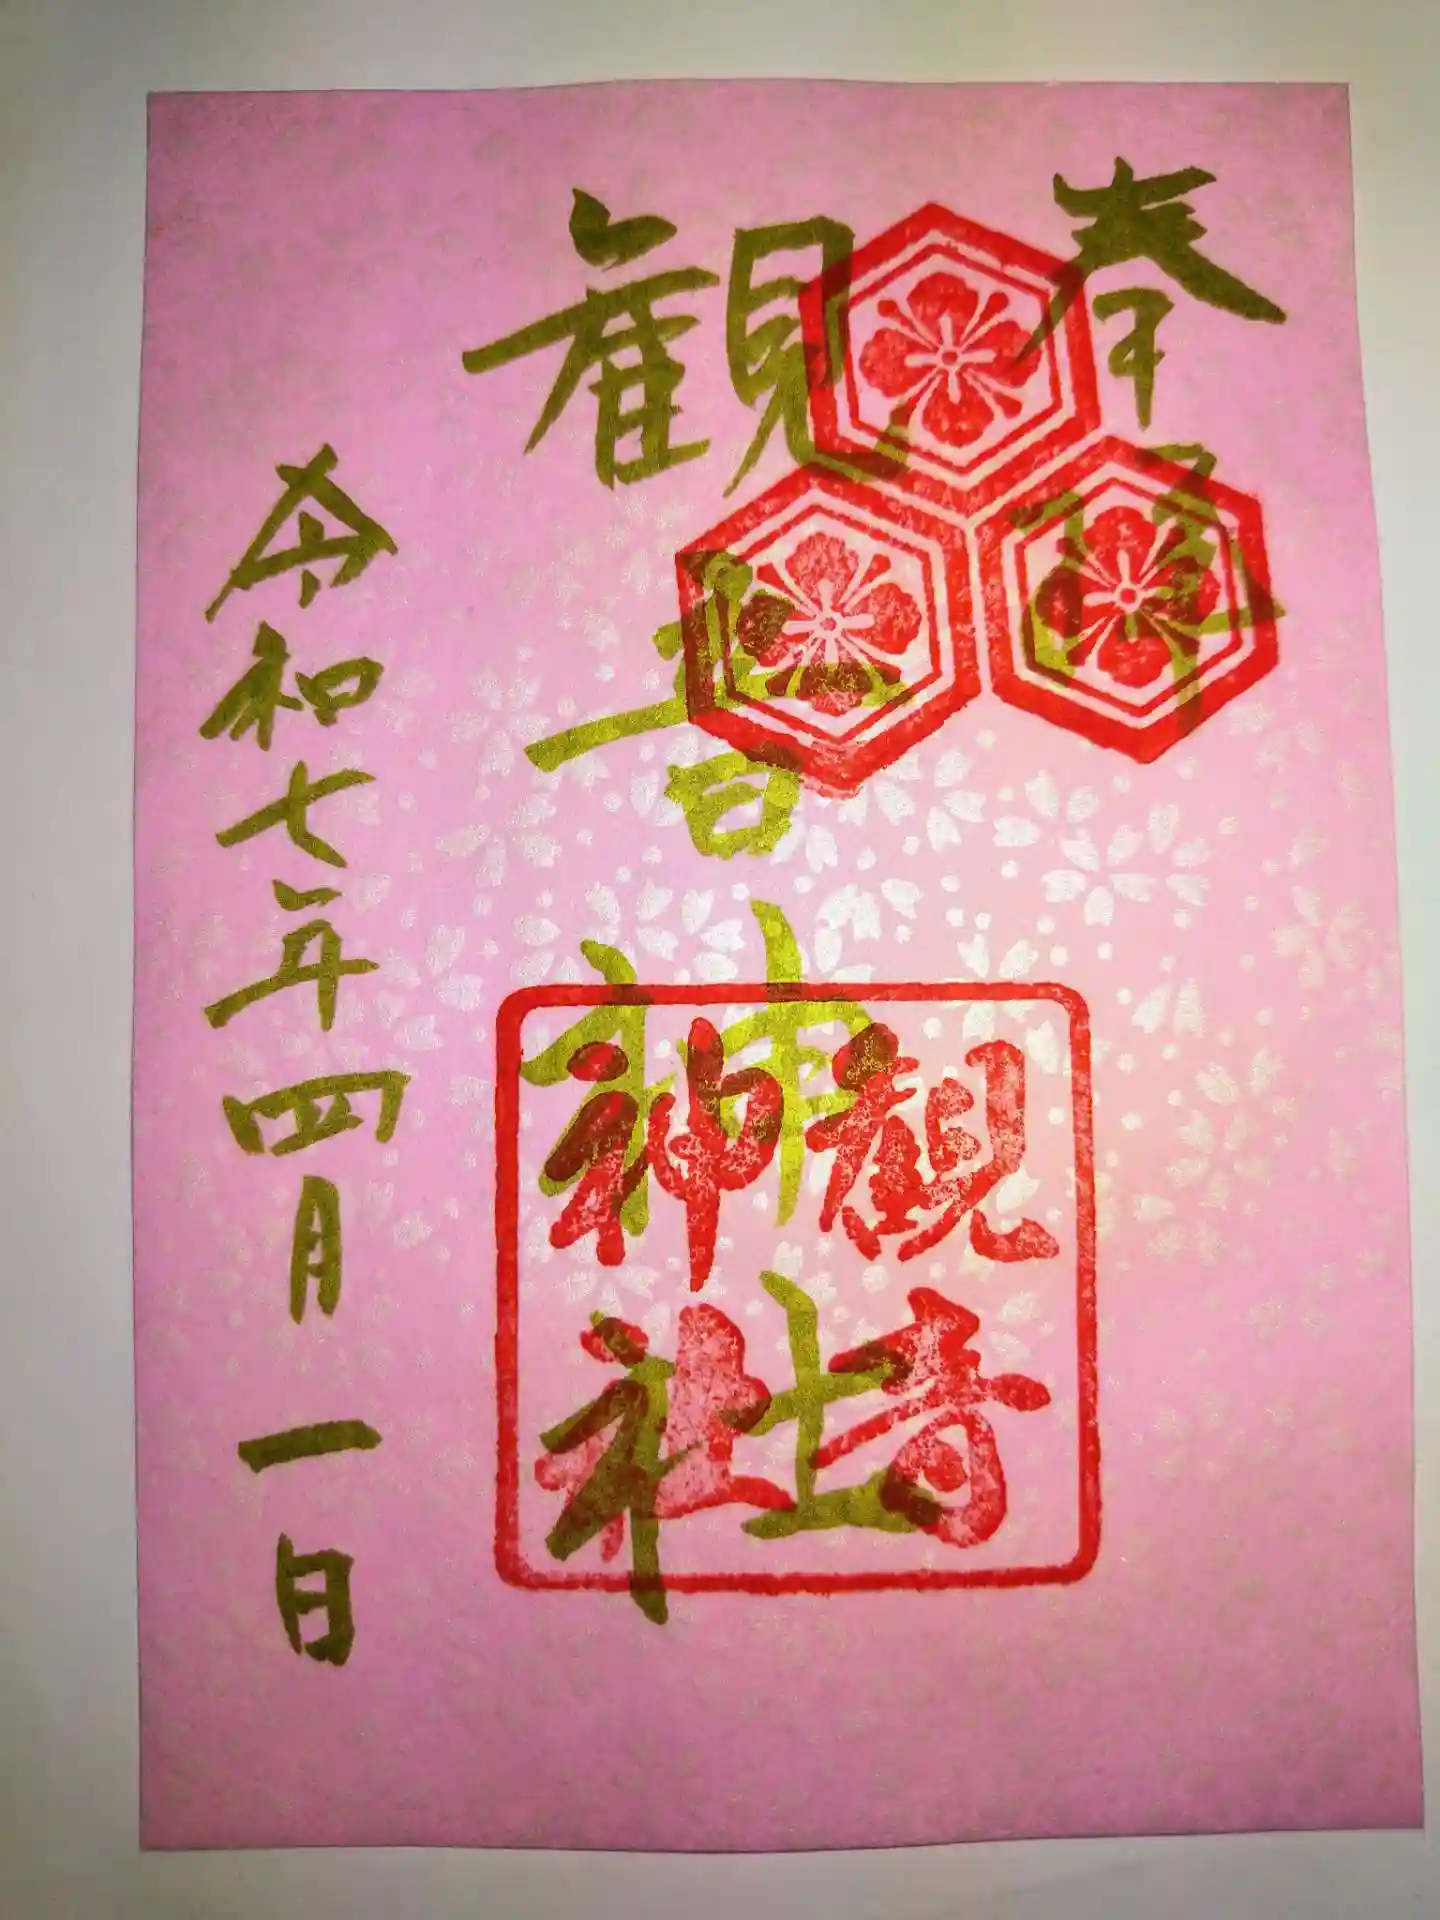 奉拝
観音神社
令和七年四月一日
観音
神社